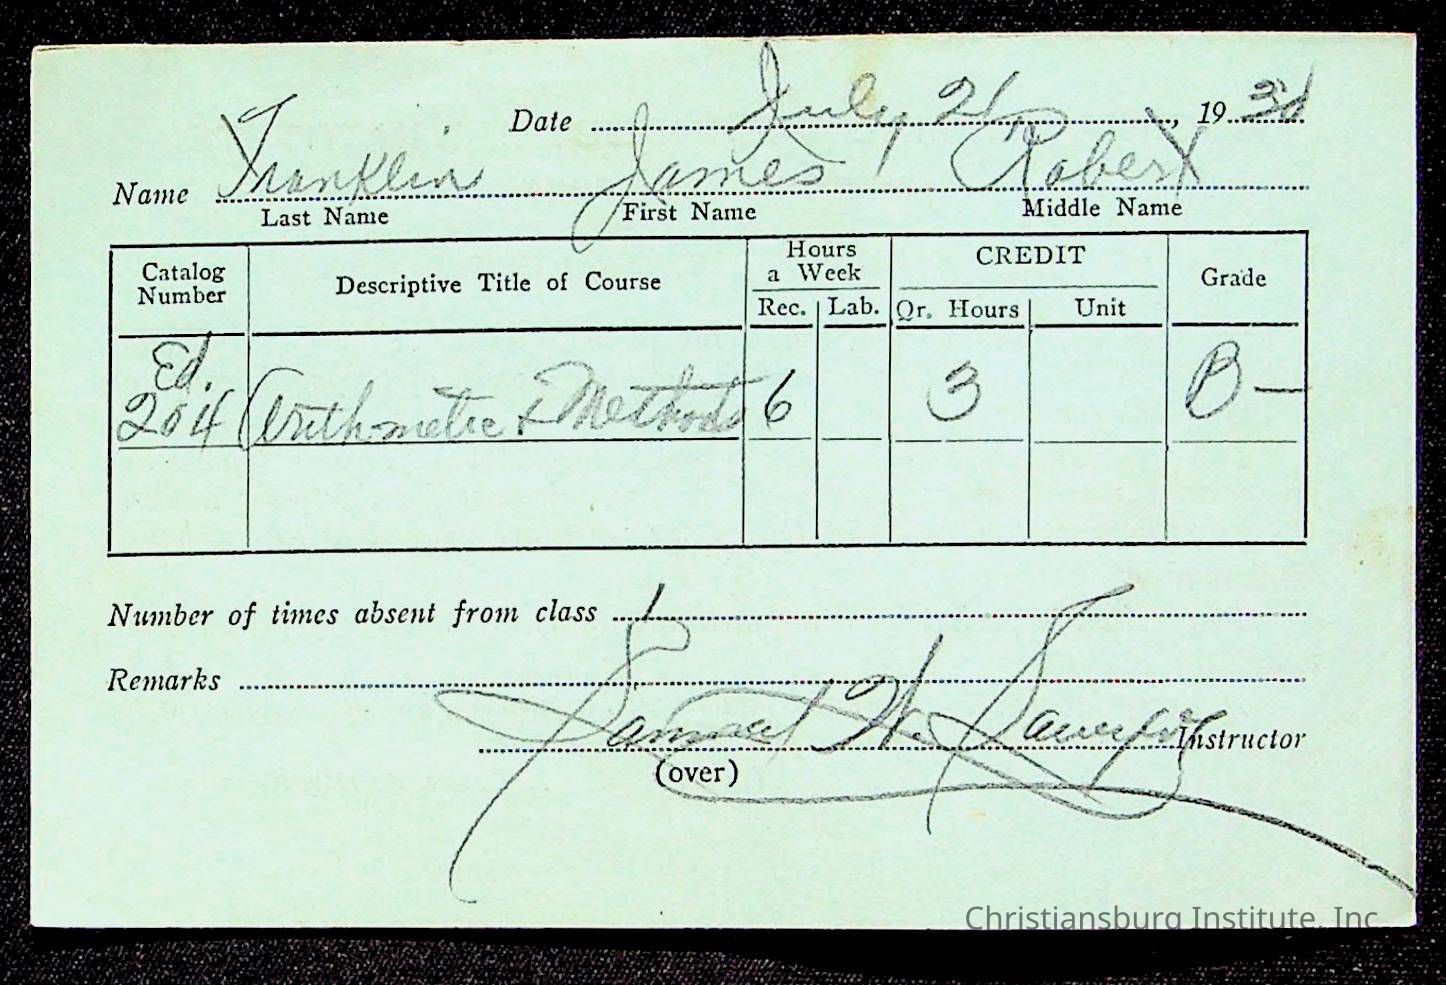 Date July 21, 1931
Name Franklin James Robert
Last Name First Name Middle Name
Catalog Number Descriptive Title of Course Hours a Week CREDIT Grade
Rec. Lab. Qr. Hours Unit
Ed. 204 Arithmetic & Methods 6 3 B-
Number of times absent from class 1
Remarks
Samuel H. Instructor
(over)
Christiansburg Institute, Inc